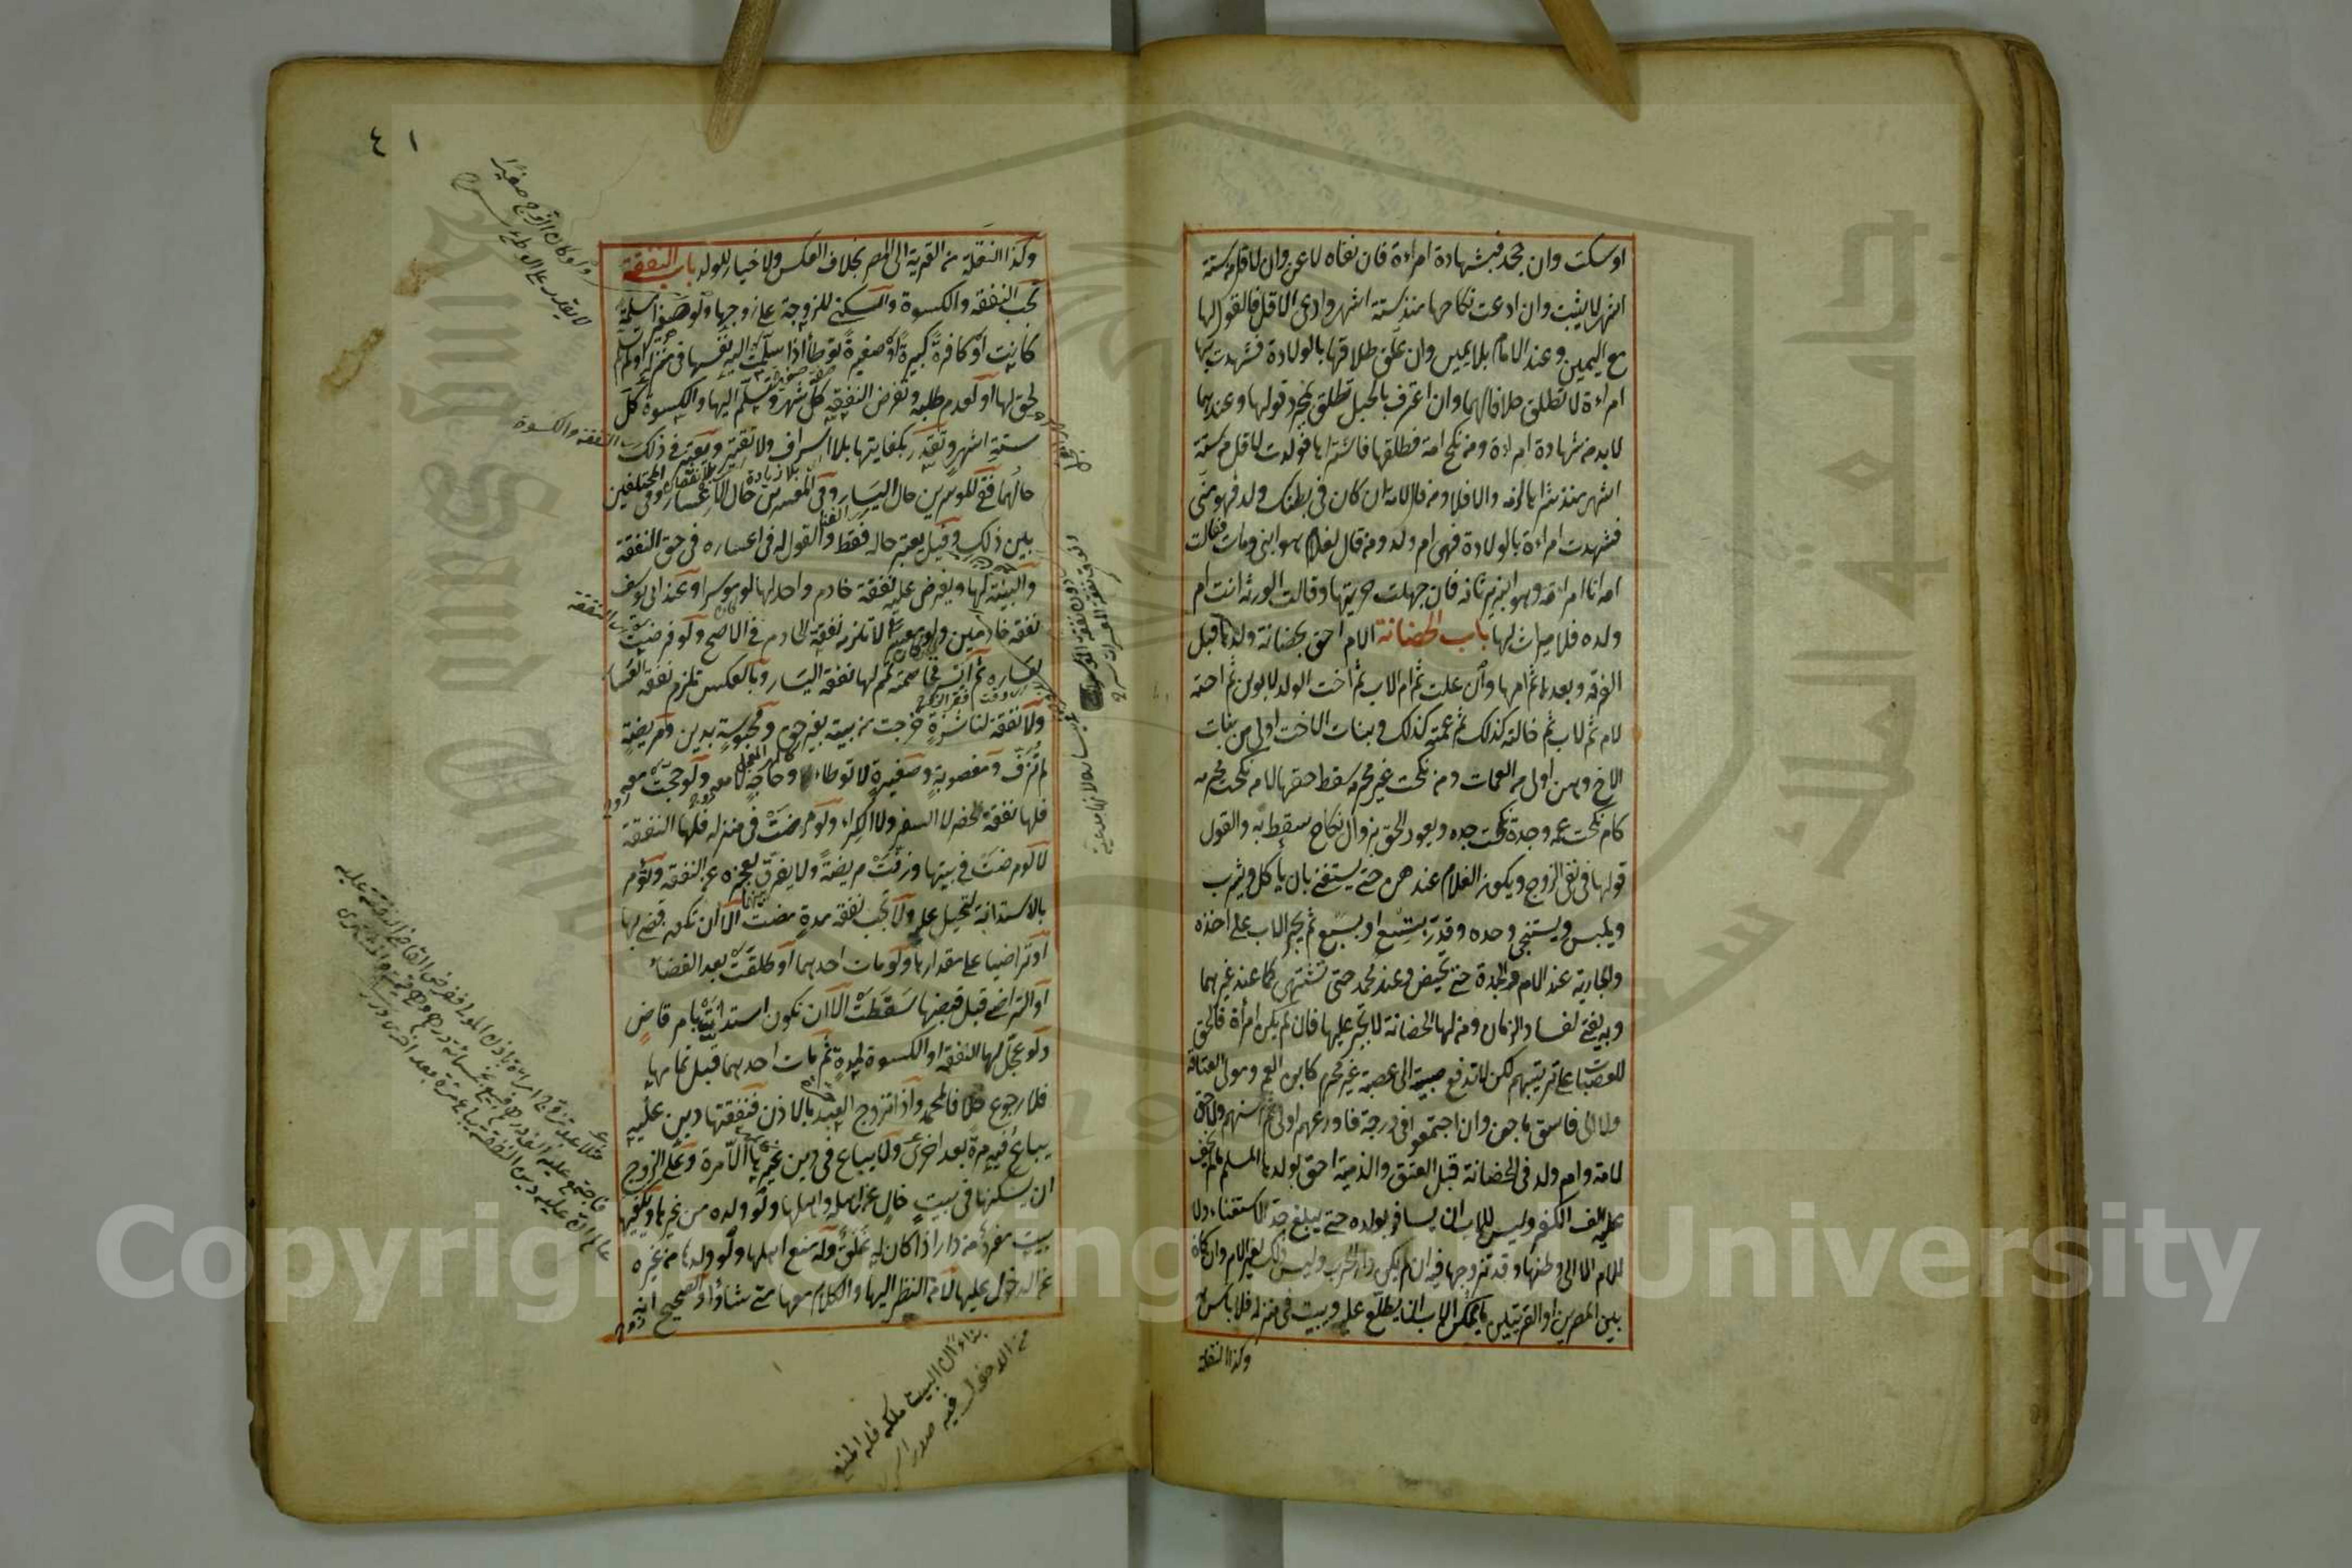 او سكت وان جحد فبشهادة امراءة فان نفاه لاعن وان لاقل من ستة
اشهر لا يثبت وان ادعت نكاحها منذ ستة اشهر وادعى الاقل فالقول لها
مع اليمين وعند الامام بلا يمين وان علق طلاقها بالولادة فشهدت بها
امراءة لا تطلق خلافا لهما وان اعترف بالحبل تطلق بمجرد قولها وعندهما
لا بد من شهادة امراءة ومن نكح امة فطلقها فاشتراها فولدت لاقل من ستة
اشهر منذ شراها لزمه والا فلا ومن قال لامته ان كان في بطنك ولد فهو مني
فشهدت امراءة بالولادة فهي ام ولد ومن قال لغلام هو ابني ومات فقالت
امه انا امراءته وهو ابنه يرثانه فان جهلت حريتها وقالت الورثة انت ام
ولده فلا ميراث لها باب الحضانة الام احق بحضانة ولدها قبل
الفرقة وبعدها ثم امها وان علت ثم ام الاب ثم اخت الولد لابوين ثم اخته
لام ثم لاب ثم خالته كذلك ثم عمته كذلك وبنات الاخت اولى من بنات
الاخ وهن اولى من العمات ومن نكحت غير محرمه سقط حقها لا من نكحت محرمه
كام نكحت عمه وجدة نكحت جده ويعود الحق بزوال نكاح سقط به والقول
قولها في نفي الزوج ويكون الغلام عندهن حتى يستغني بان ياكل ويشرب
ويلبس ويستنجي وحده وقدر بتسع او بسبع ثم يجبر الاب على اخذه
والجارية عند الام والجدة حتى تحيض وعند محمد حتى تشتهى كما عند غيرهما
وبه يفتى لفساد الزمان ومن لها الحضانة لا تجبر عليها فان لم يكن امرأة فالحق
للعصبات على ترتيبهم لكن لا تدفع صبية الى عصبة غير محرم كابن العم ومولى العتاقة
ولا الى فاسق ماجن وان اجتمعوا في درجة فاورعهم اولى ثم اسنهم ولا حق
لامة وام ولد في الحضانة قبل العتق والذمية احق بولدها المسلم ما لم يخف
عليه الف الكفر وليس للاب ان يسافر بولده حتى يبلغ حد الاستغناء ولا
للام الا الى وطنها وقد تزوجها فيه ان لم يكن دار الحرب وليس ذلك لغير الام وان كان
بين المصرين او القريتين ما يمكن الاب ان يطلع عليه ويبيت في منزله فلا باس به
وكذا النقلة
٤١
وكذا النقلة من القرية الى المصر بخلاف العكس ولا خيار للولد باب النفقة
تجب النفقة والكسوة والسكنى للزوجة على زوجها ولو صغيرا مسلمة
كانت او كافرة كبيرة او صغيرة توطأ اذا سلمت اليه نفسها في منزله او لم تسلم
لحق لها او لعدم طلبه وتفرض النفقة كل شهر وتسلم اليها والكسوة كل
ستة اشهر وتقدر بكفايتها بلا اسراف ولا تقتير ويعتبر في ذلك
حالهما ففي الموسرين حال اليسار وفي المعسرين حال الاعسار وفي المختلفين
بين ذلك وقيل يعتبر حاله فقط والقول له في اعساره في حق النفقة
والبينة لها ويفرض عليه نفقة خادم واحد لها لو موسرا وعند ابي يوسف
نفقة خادمين ولو معسرا لا تلزمه نفقة الخادم في الاصح ولو فرضت
لعساره ثم ايسر فخاصمته تمم لها نفقة اليسار وبالعكس تلزم نفقة العسار
ولا نفقة لناشزة خرجت من بيته بغير حق ومحبوسة بدين ومريضة
لم تزف ومغصوبة وصغيرة لا توطاء وحاجة لا معه ولو حجت معه
فلها نفقة الحضر لا السفر ولا الكراء ولو مرضت في منزله فلها النفقة
لا لو مرضت في بيتها وزفت مريضة ولا يفرق بعجزه عن النفقة وتؤمر
بالاستدانة لتحيل عليه ولا تجب نفقة مدة مضت الا ان تكون قضي بها
او تراضيا على مقدارها ولو مات احدهما او طلقت بعد القضاء
او التراضي قبل قبضها سقطت الا ان تكون استدانت بامر قاض
ولو عجل لها النفقة او الكسوة لمدة ثم مات احدهما قبل تمامها
فلا رجوع خلافا لمحمد واذا تزوج العبد بالاذن فنفقتها دين عليه
يباع فيه مرة بعد اخرى ولا يباع في دين غيرها الا مرة وعلى الزوج
ان يسكنها في بيت خال عن اهله واهلها ولو ولده من غيرها ويكفيها
بيت مفرد من دار اذا كان له غلق وله منع اهلها ولو ولدها من غيره
عن الدخول عليها لا من النظر اليها والكلام معها متى شاؤا والصحيح انه
ولو كان الزوج صغيرا
لا يقدر على الوطئ
النفقة والكسوة
النفقة
بناء ان البيت ملكه فله المنع
من الدخول فيه صدر